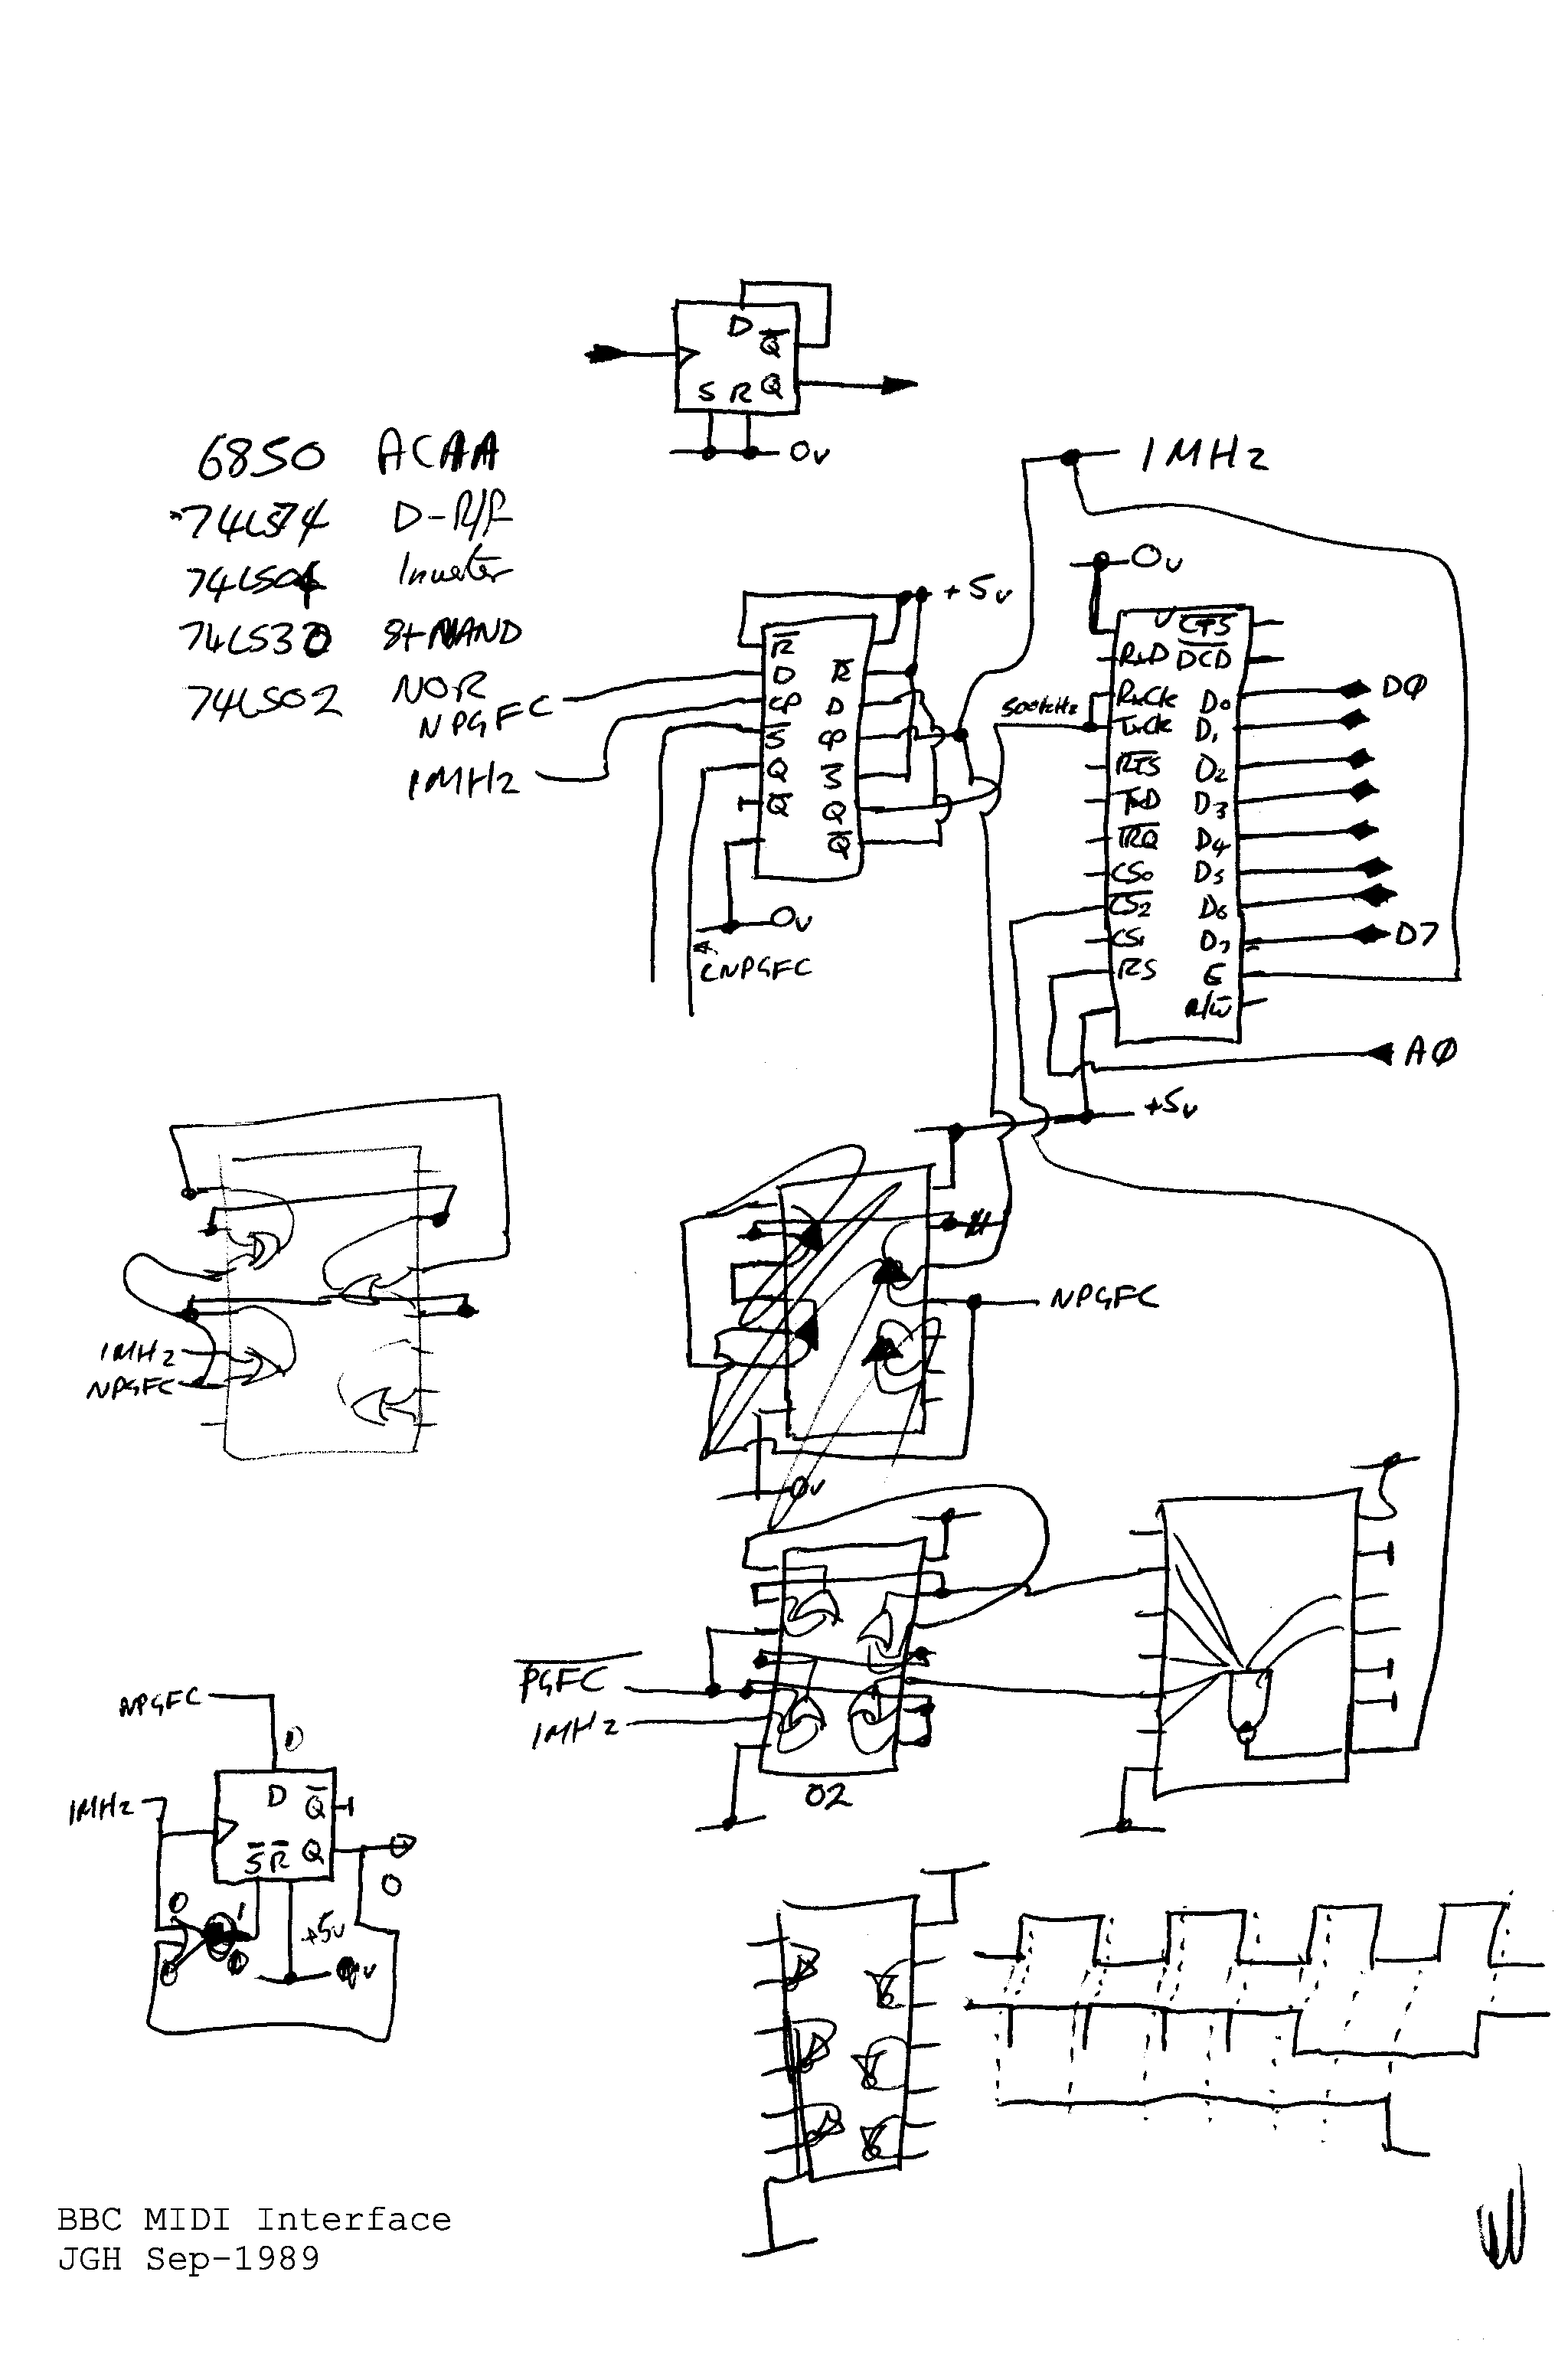 D
Q̅
S R Q
0v
6850 ACAA
74LS74 D-F/F
74LS04 Inverter
74LS30 8+NAND
74LS02 NOR
1MHz
0v
+5v
NPGFC
1MHz
R̅
D
CP
S̅
Q
Q̅
R̅
D
CP
S̅
Q
Q̅
0v
CNPGFC
500kHz
C̅T̅S̅
RxD D̅C̅D̅
RxCk D0
TxCk D1
R̅T̅S̅ D2
TxD D3
I̅R̅Q̅ D4
CS0 D5
C̅S̅2̅ D6
CS1 D7
RS E
R/W̅
DØ
D7
AØ
+5v
1MHz
NPGFC
NPGFC
0v
P̅G̅F̅C̅
1MHz
02
NPGFC
D
1MHz
D Q̅
S̅ R̅ Q
0
0 1
0
+5v
BBC MIDI Interface
JGH Sep-1989